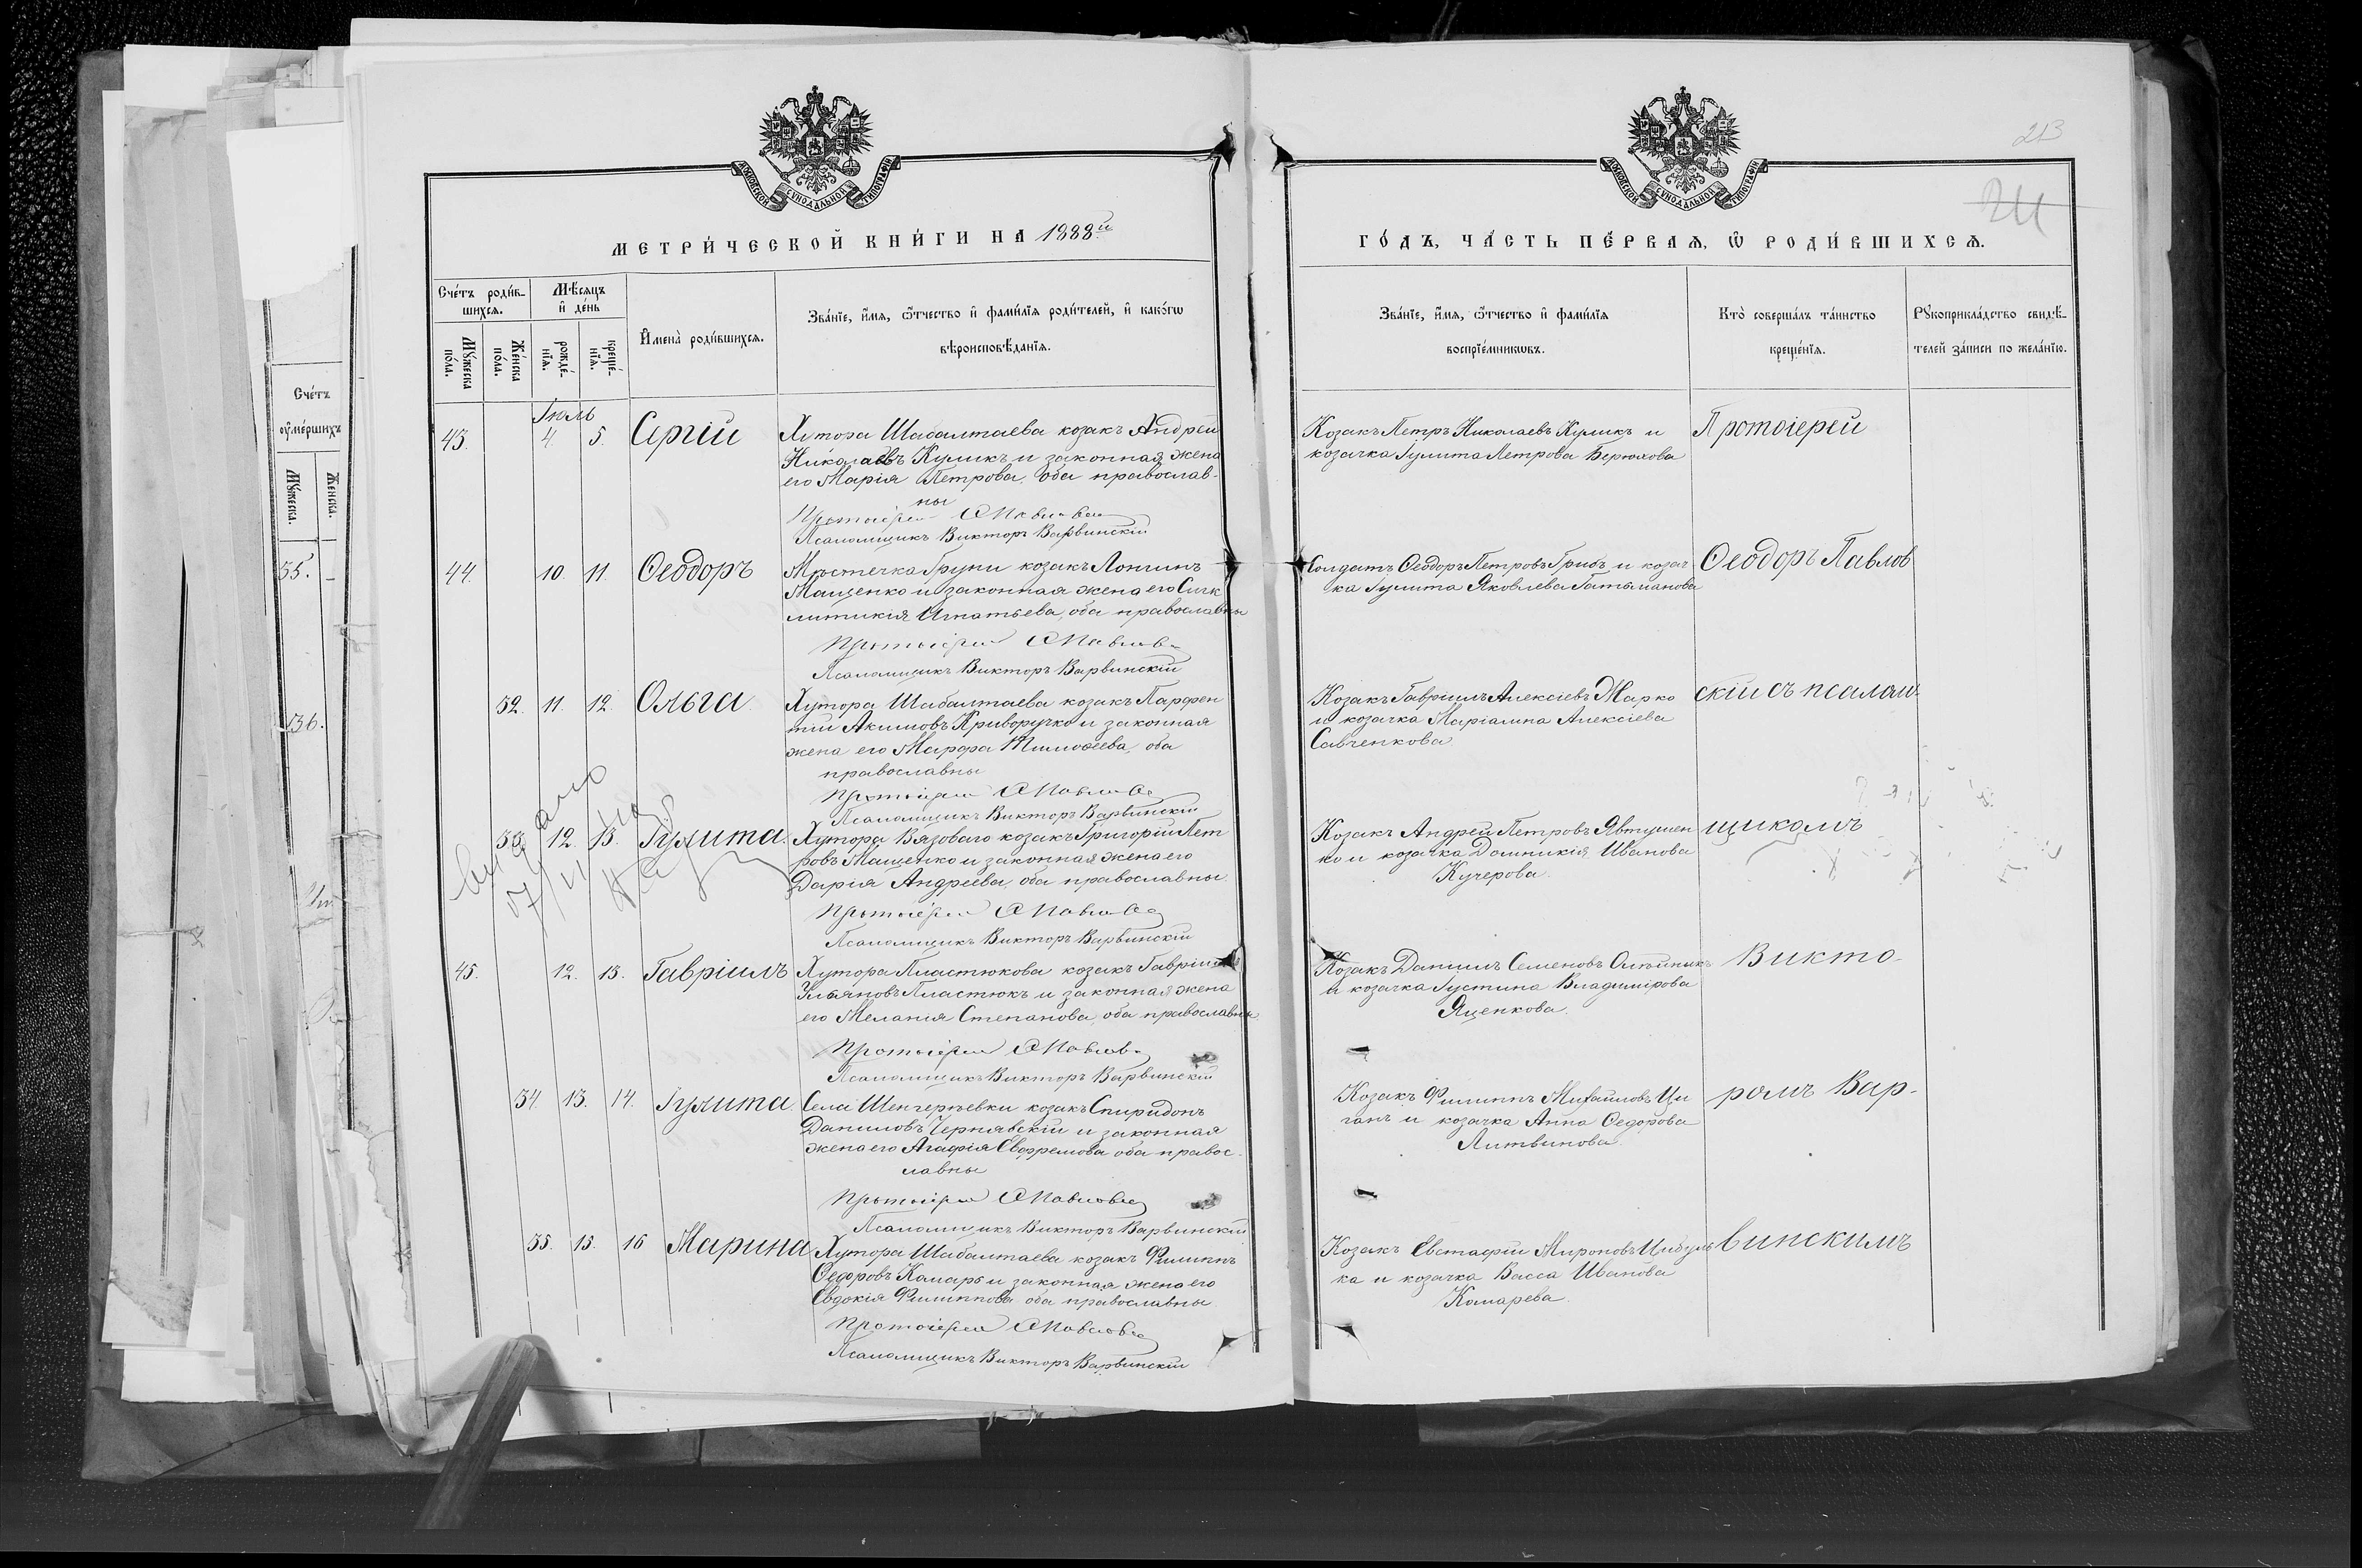 МОСКОВСКОЙ СУНОДАЛЬНОЙ ТИПОГРАФІИ
МЕТРИ́ЧЕСКОЙ КНИ́ГИ НА 1888й
Сче́тъ роди́в-
шихсѧ.
Мѣ́сѧцъ
и҆ де́нь
Мꙋ́жеска
по́ла.
Же́нска
по́ла.
рожде́-
нїѧ.
креще́-
нїѧ.
И҆мена̀ роди́вшихсѧ.
Зва́нїе, и҆́мѧ, ѻ҆́тчество и҆ фами́лїѧ роди́телей, и҆ како́гѡ
вѣроисповѣ́данїѧ.
Іюль
43. 4. 5. Сергій
Хутора Шабалтаева козакъ Андрей
Николаевъ Куликъ и законная жена
его Марія Петрова, оба православ-
ны
Протоіерей Ѳ Павловскій
Псаломщикъ Викторъ Варвинскій
44. 10. 11. Ѳеодоръ
Мѣстечка Груни козакъ Логинъ
Мащенко и законная жена его Синк
литикія Игнатьева, оба православны
Протоіерей Ѳ Павловскій
Псаломщикъ Викторъ Варвинскій
52. 11. 12. Ольга
Хутора Шабалтаева козакъ Парфен
тій Акимовъ Криворучко и законная
жена его Марфа Тимоѳеева, оба
православны
Протоіерей Ѳ Павловскій
Псаломщикъ Викторъ Варвинскій
53. 12. 13. Іулита.
Хутора Вязоваго козакъ Григорій Пет
ровъ Мащенко и законная жена его
Дарія Андреева, оба православны
Протоіерей Ѳ Павловскій
Псаломщикъ Викторъ Варвинскій
45. 12. 13. Гавріилъ
Хутора Пластюкова козакъ Гавріилъ
Ульяновъ Пластюкъ и законная жена
его Меланія Степанова, оба православны
Протоіерей Ѳ Павловскій
Псаломщикъ Викторъ Варвинскій
54. 13. 14. Іулита.
Села Шенгерѣевки козакъ Спиридонъ
Даниловъ Чернявскій и законная
жена его Агафія Евфремова оба правос-
лавны
Протоіерей Ѳ Павловскій
Псаломщикъ Викторъ Варвинскій
55. 15. 16 Марина
Хутора Шабалтаева козакъ Филиппъ
Ѳедоровъ Камарь и законная жена его
Евдокія Филиппова оба православны
Протоіерей Ѳ Павловскій
Псаломщикъ Викторъ Варвинскій
Сче́тъ
ᲂу҆ме́ршихъ
Мꙋ́жеска.
Же́нска.
55. -
136.
213
МОСКОВСКОЙ СУНОДАЛЬНОЙ ТИПОГРАФІИ
ГО́ДЪ, ЧА́СТЬ ПЕ́РВАѦ, Ѡ҆ РОДИ́ВШИХСѦ.
Зва́нїе, и҆́мѧ, ѻ҆́тчество и҆ фами́лїѧ
воспрїе́мникѡвъ.
Кто̀ соверша́лъ та́инство
креще́нїѧ.
Рꙋкоприкла́дство свидѣ́-
телей за́писи по жела́нїю.
Козакъ Петръ Николаевъ Куликъ и
козачка Іулита Петрова Берюхова
Протоіерей
Солдатъ Ѳеодоръ Петровъ Грибъ и козач
ка Іулита Яковлева Гатьманова
Ѳеодоръ Павлов
Козакъ Гавріилъ Алексіевъ Марко
и козачка Маріамна Алексіева
Савченкова
скій съ псалом-
Козакъ Андрей Петровъ Явтушен
ко и козачка Домникія Иванова
Кучерова.
щикомъ
Козакъ Даніилъ Семеновъ Олѣйникъ
и козачка Іустина Владимірова
Яценкова.
Викто-
Козакъ Филиппъ Михаиловъ Ци
ганъ и козачка Анна Ѳедорова
Литвинова
ромъ Вар-
Козакъ Евстафій Мироновъ Цибуль
ка и козачка Васса Иванова
Комарева.
винскимъ